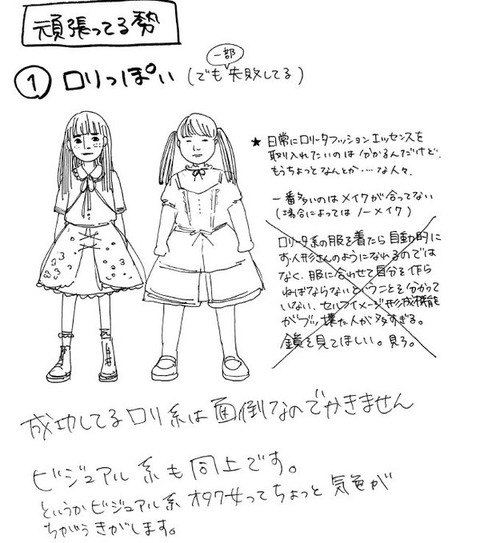 頑張ってる勢
① ロリっぽい (でも 一部 失敗してる)
★ 日常にロリータファッションエッセンスを
取り入れたいのは分かるんだけど、
もうちょっとなんとか‥‥な人々。
一番多いのはメイクが合ってない
(場合によってはノーメイク)
ロリータ系の服を着たら自動的に
お人形さんのようになれるのでは
なく、服に合わせて自分を作ら
ねばならないということを分かって
いない、セルフイメージ形成機能
がブッ壊れた人が多すぎる。
鏡を見てほしい。見ろ。
成功してるロリ系は面倒なのでかきません
ビジュアル系も同上です。
というかビジュアル系オタク女ってちょっと気色が
ちがうきがします。